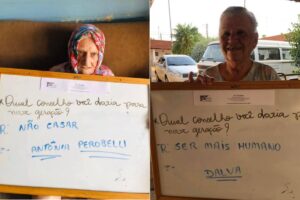 Qual conselho você daria para
nova geração?
R. NÃO CASAR
ANTÔNIA PEROBELLI
Qual conselho você daria para
nova geração?
R. SER MAIS HUMANO
DALVA